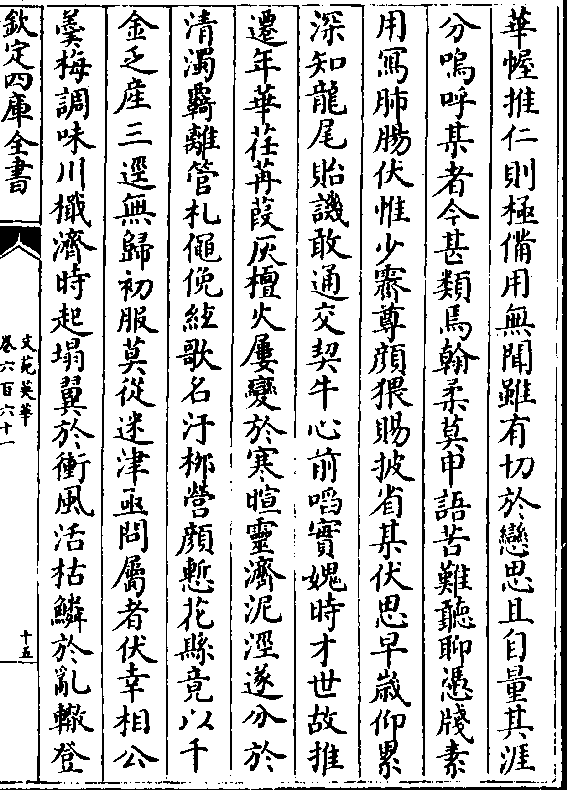 華幄推仁則極備用無聞雖有切於戀思且自量其涯
分嗚呼某者今甚類焉翰柔莫申語苦難聽聊憑牋素
用寫肺腸伏惟少霽尊顔猥賜披省某伏思早歲仰累
深知龍尾貽譏敢通交契牛心前㗖實媿時才世故推
遷年華荏苒葭灰檀火屢變於寒暄靈濟泥涇遂分於
清濁羇離管札僶俛絃歌名汙梛營顔慙花縣竟以千
金乏産三逕無歸初服莫從迷津亟問屬者伏幸相公
羮梅調味川檝濟時起塌翼於衝風活枯鱗於亂轍登
欽定四庫全書
文苑英華
卷六百六十一
十五